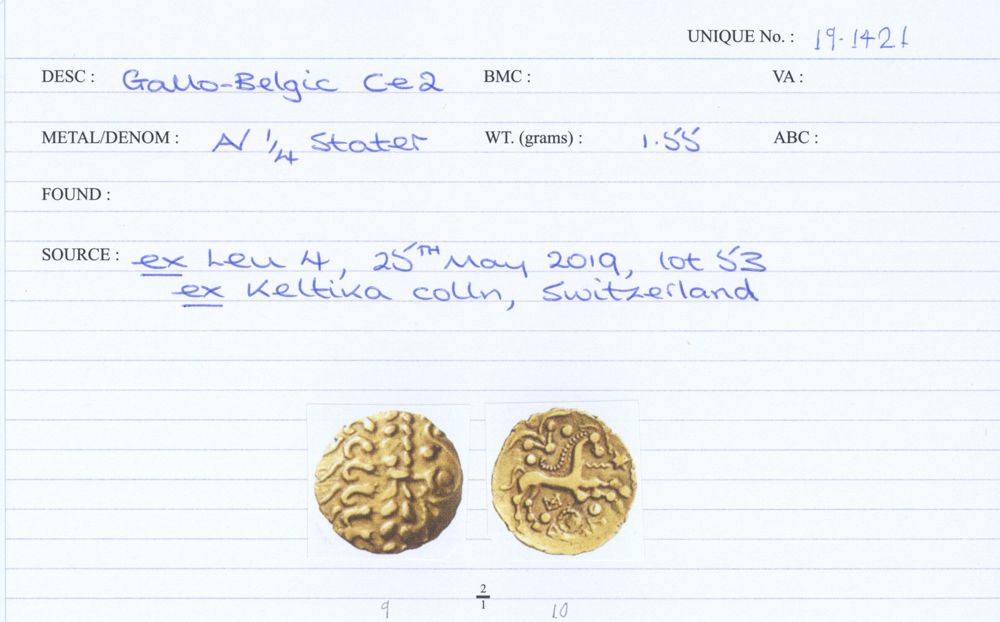 UNIQUE No. : 19.1421
DESC : Gallo-Belgic Ce2 BMC : VA :
METAL/DENOM : AV 1/4 Stater WT. (grams) : 1.55 ABC :
FOUND :
SOURCE : ex Leu 4, 25TH May 2019, lot 53
ex Keltika colln, Switzerland
2/1
9 10